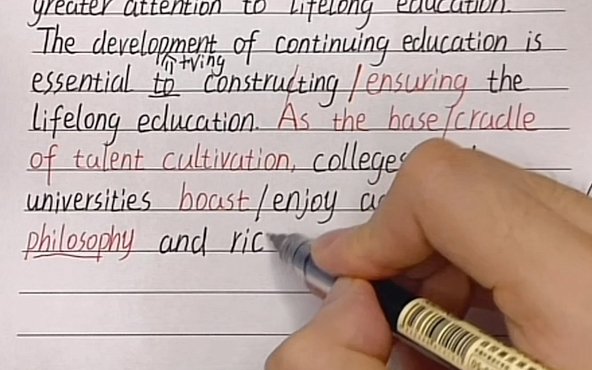 greater attention to lifelong education.
The development of continuing education is
介+ving
essential to constructing/ensuring the
lifelong education. As the base/cradle
of talent cultivation, colleges
universities boast/enjoy
philosophy and ric